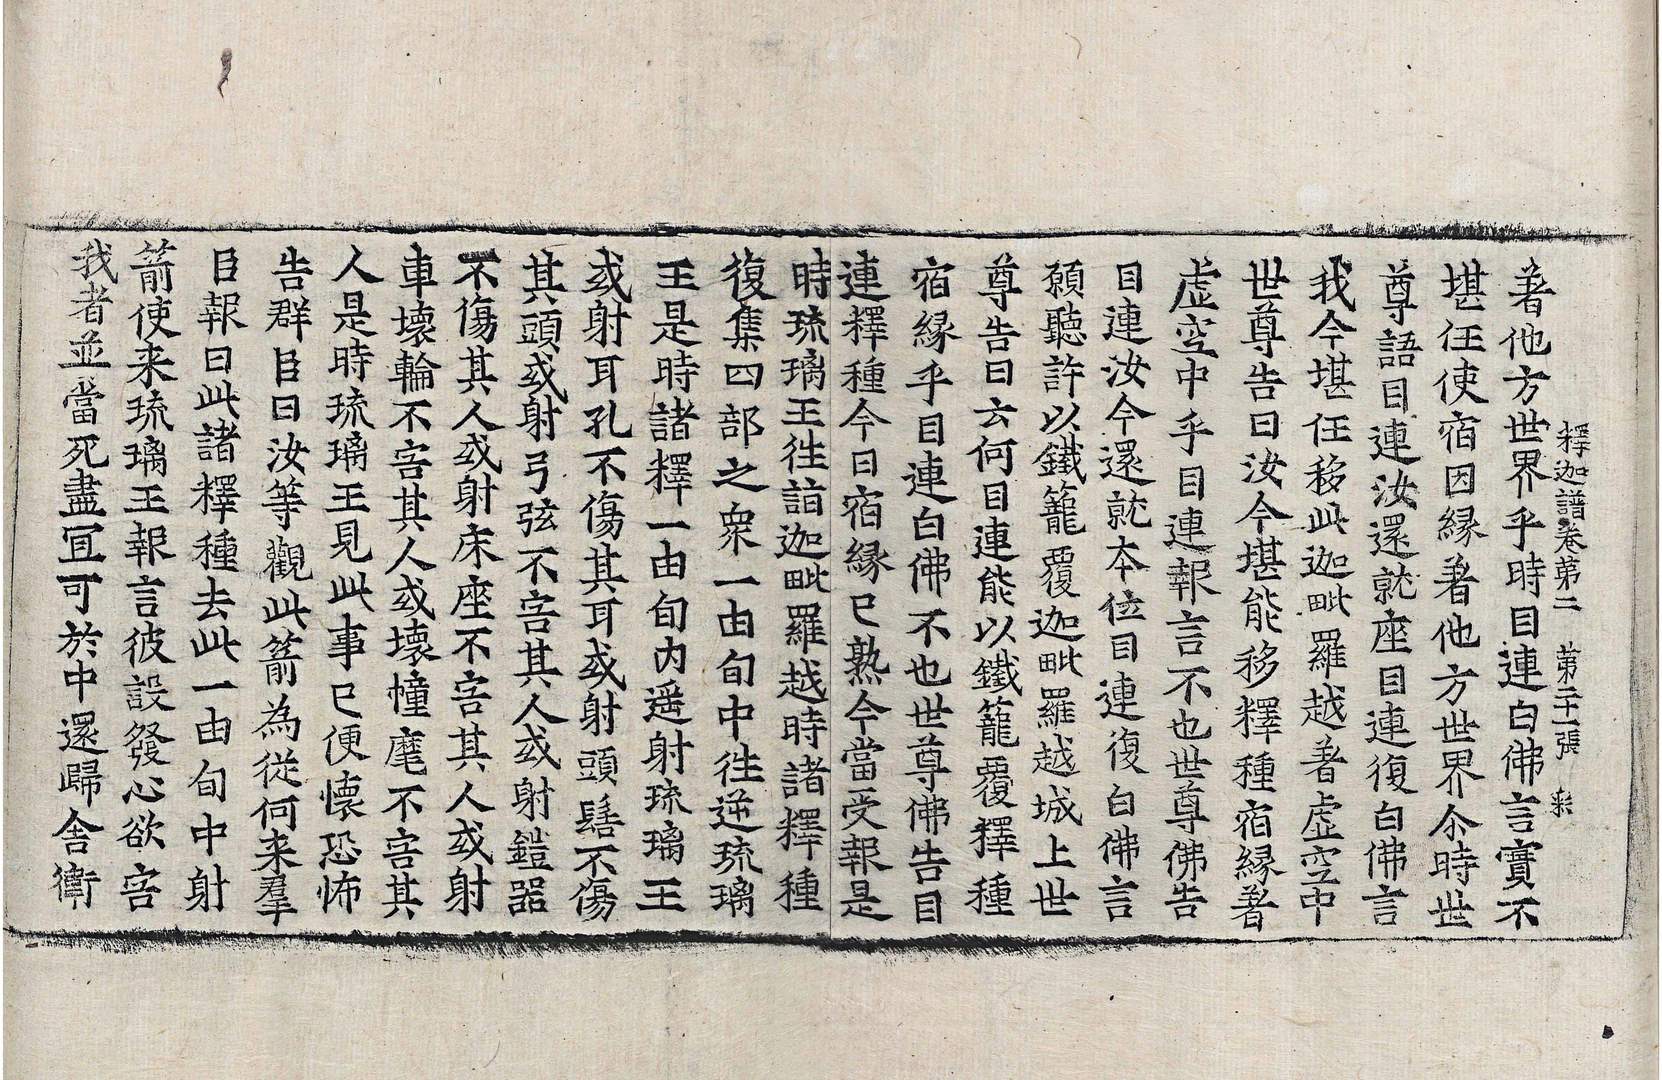 釋迦譜卷第二 第二十二張 彩
著他方世界乎時目連白佛言實不
堪任使宿因緣著他方世界尒時世
尊語目連汝還就座目連復白佛言
我今堪任移此迦毗羅越著虛空中
世尊告曰汝今堪能移釋種宿緣著
虛空中乎目連報言不也世尊佛告
目連汝今還就本位目連復白佛言
願聽許以鐵籠覆迦毗羅越城上世
尊告曰云何目連能以鐵籠覆釋種
宿緣乎目連白佛不也世尊佛告目
連釋種今日宿緣已熟今當受報是
時琉璃王往詣迦毗羅越時諸釋種
復集四部之衆一由旬中往逆琉璃
王是時諸釋一由旬內遥射琉璃王
或射耳孔不傷其耳或射頭髻不傷
其頭或射弓弦不害其人或射鎧器
不傷其人或射床座不害其人或射
車壞輪不害其人或壞幢麾不害其
人是時琉璃王見此事已便懷恐怖
告群臣曰汝等觀此箭為從何来羣
臣報曰此諸釋種去此一由旬中射
箭使来琉璃王報言彼設發心欲害
我者並當死盡冝可於中還歸舍衛